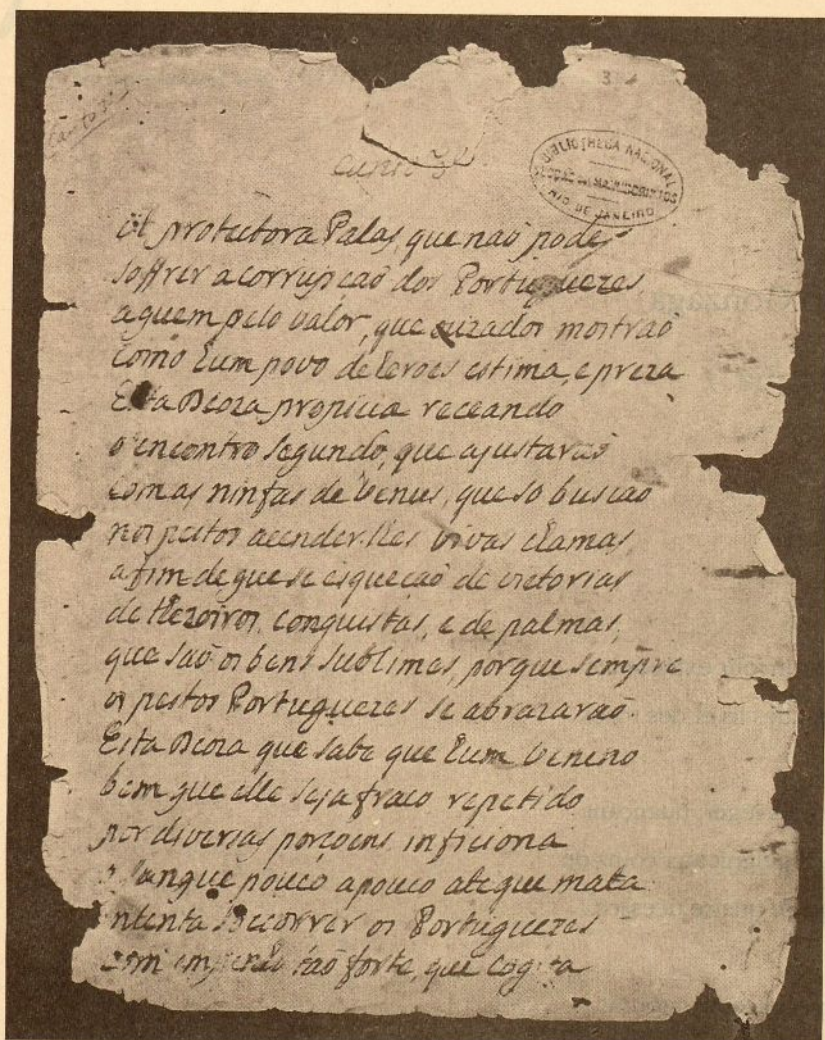 Canto 3º
3
Canto 3º
BIBLIOTHECA NACIONAL
SECÇÃO DE MANUSCRIPTOS
RIO DE JANEIRO
protectora Palas, que naõ pode
soffrer a corrupçaõ dos Portuguezes
a quem pelo valor, que ouzados mostraõ
como hum povo de heroes estima, e preza
Esta Deoza propicia receando
o encontro segundo, que ajustaraõ
com as ninfas de Venus, que so buscaõ
nos peitos acender-lhes vivas chamas,
a fim de que se esqueçaõ de victorias
de conquistas, e de palmas,
que saõ os bens sublimes, porque sempre
os peitos Portuguezes se abrazaraõ.
Esta Deoza que sabe que hum veneno
bem que elle seja fraco repetido
por diversas porçoens inficiona
sangue pouco a pouco ate que mata
intenta soccorrer os Portuguezes
com taõ forte, que cogita